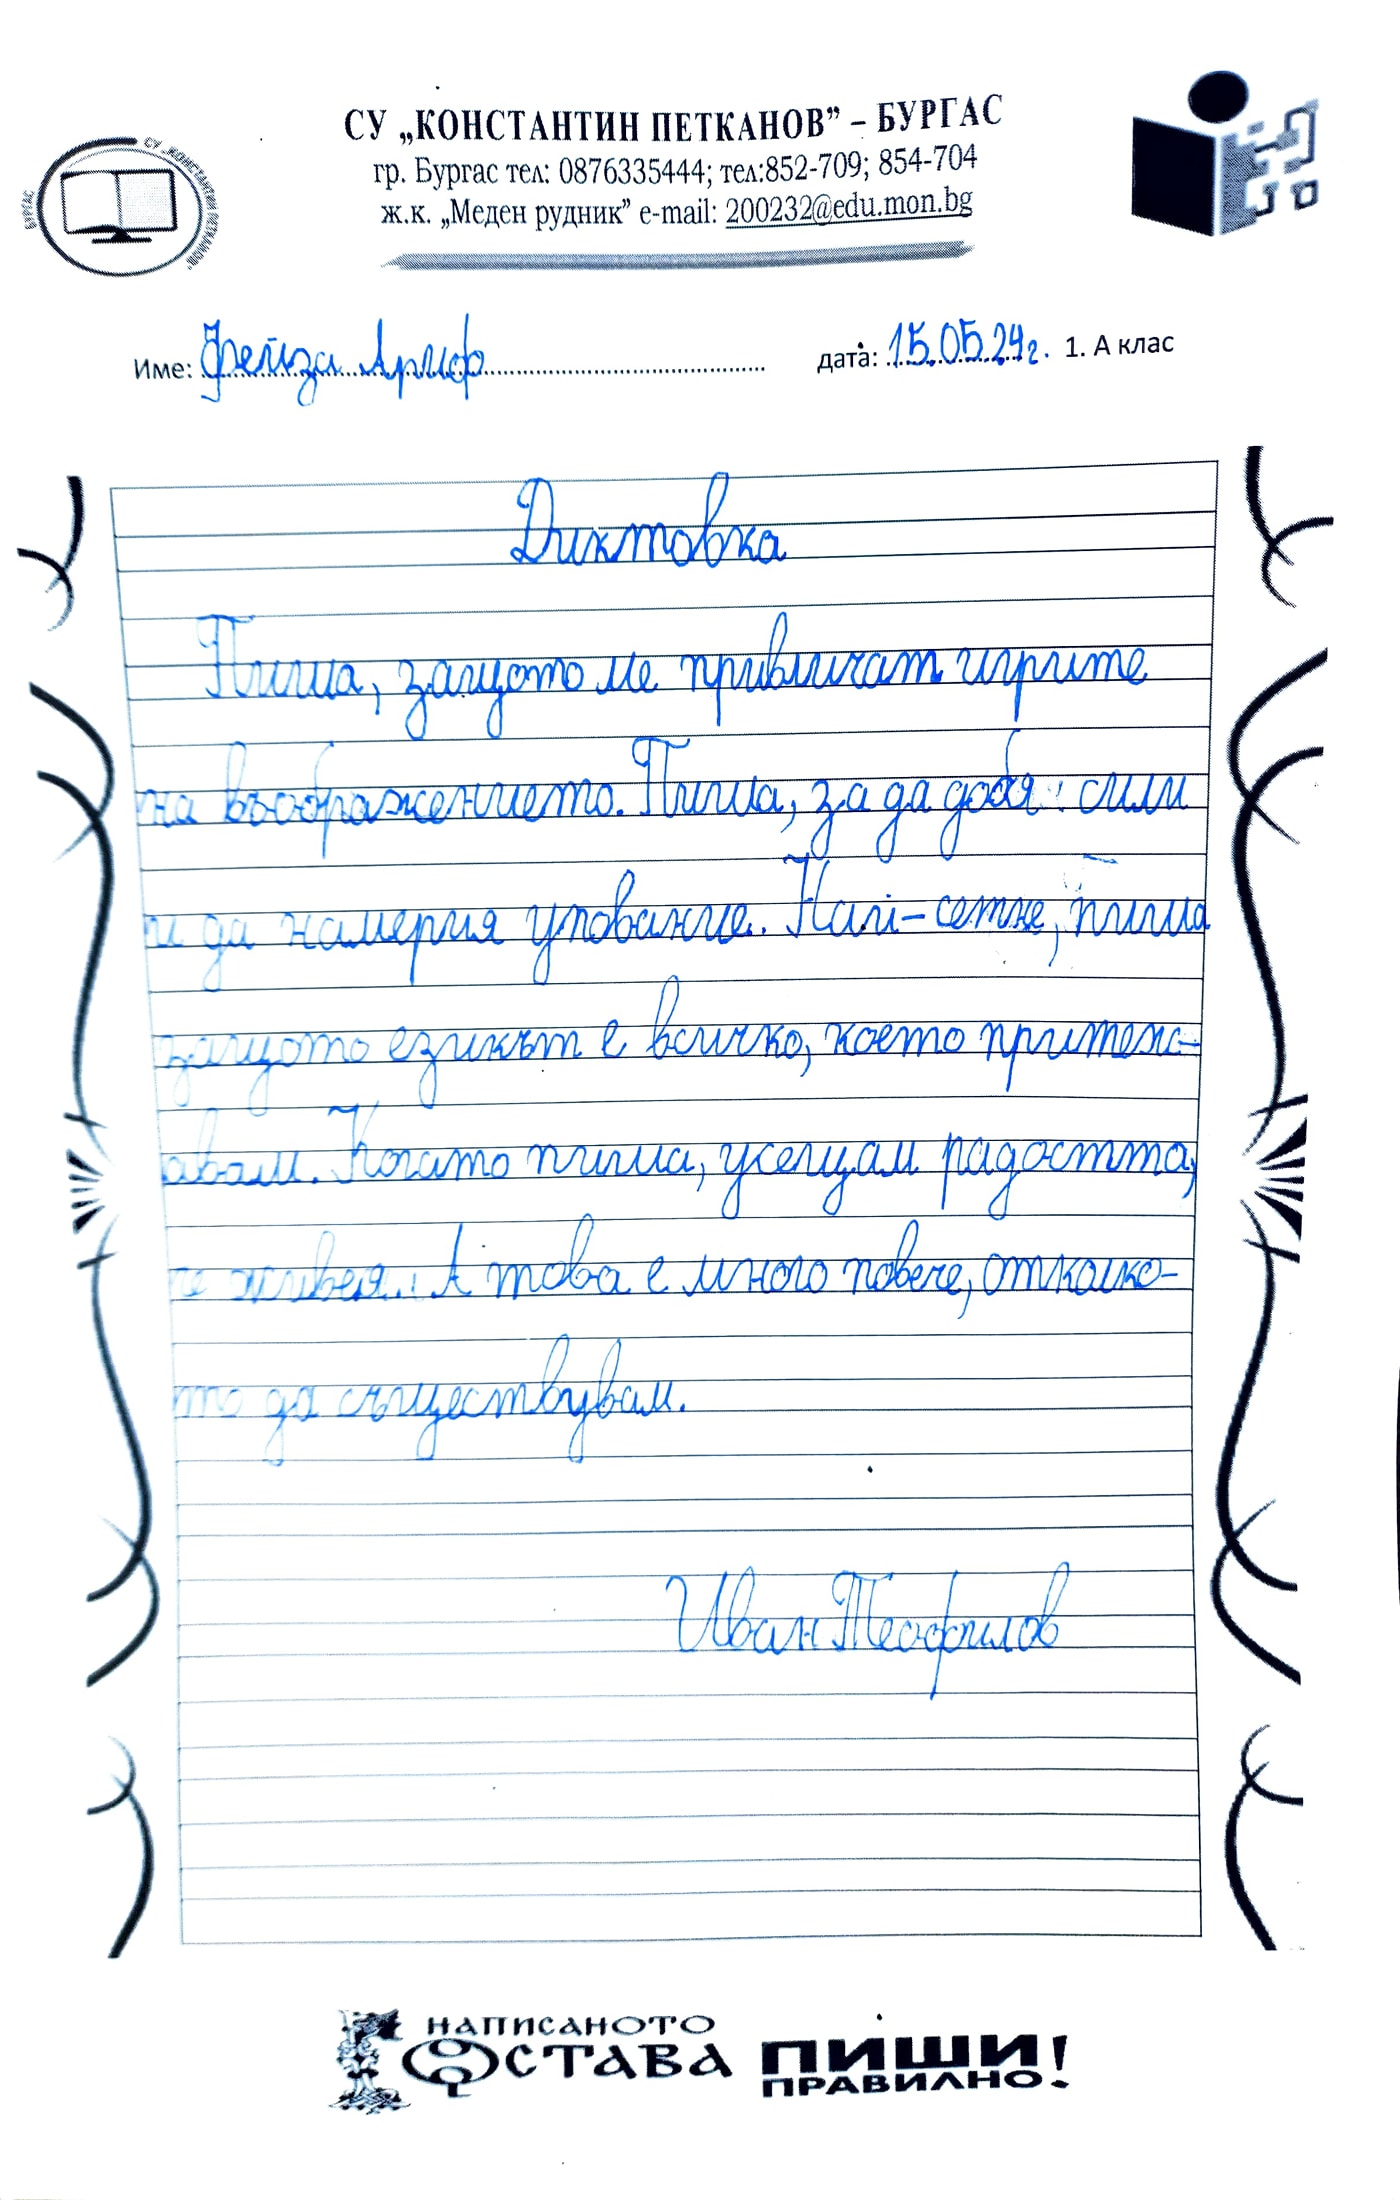 СУ „КОНСТАНТИН ПЕТКАНОВ” – БУРГАС
гр. Бургас тел: 0876335444; тел:852-709; 854-704
ж.к. „Меден рудник” e-mail: 200232@edu.mon.bg
БУРГАС СУ „КОНСТАНТИН ПЕТКАНОВ”
Име: Фейза Ариф дата: 15.05.24г. 1. А клас
Диктовка
Пиша, защото ме привличат игрите
на въображението. Пиша, за да добя сили
и да намеря упование. Най-сетне, пиша
защото езикът е всичко, което притеж-
авам. Когато пиша, усещам радостта,
че живея. А това е много повече, отколко-
то да съществувам.
Иван Теофилов
НАПИСАНОТО
ОСТАВА
ПИШИ
ПРАВИЛНО!